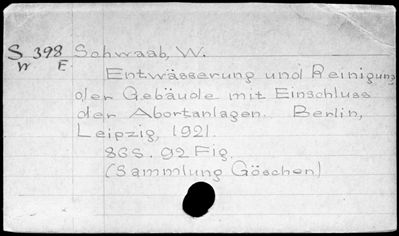 S 398 Schwaab, W.
W E. Entwässerung und Reinigung
der Gebäude mit Einschluss
der Abortanlagen. Berlin,
Leipzig, 1921.
86S. 92 Fig.
(Sammlung Göschen)